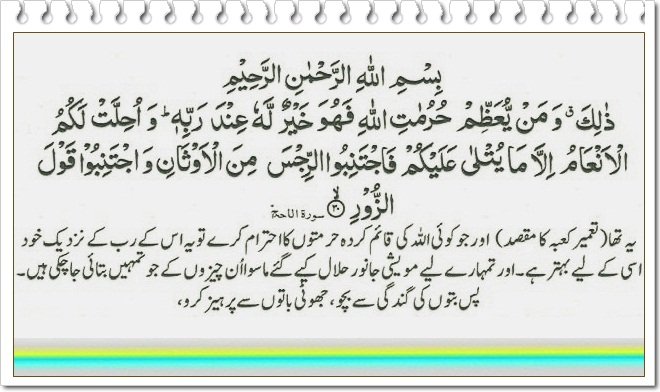 بِسْمِ اللهِ الرَّحْمٰنِ الرَّحِيْمِ
ذٰلِكَ ۗ وَمَنْ يُّعَظِّمْ حُرُمٰتِ اللهِ فَهُوَ خَيْرٌ لَّهٗ عِنْدَ رَبِّهٖ ؕ وَ اُحِلَّتْ لَكُمُ
الْاَنْعَامُ اِلَّا مَا يُتْلٰى عَلَيْكُمْ فَاجْتَنِبُوا الرِّجْسَ مِنَ الْاَوْثَانِ وَ اجْتَنِبُوْا قَوْلَ
الزُّوْرِ ﴿۳۰﴾ سورۃ الحج
یہ تھا (تعمیر کعبہ کا مقصد) اور جو کوئی اللہ کی قائم کردہ حرمتوں کا احترام کرے تو یہ اس کے رب کے نزدیک خود
اسی کے لیے بہتر ہے۔ اور تمہارے لیے مویشی جانور حلال کیے گئے ماسوا اُن چیزوں کے جو تمہیں بتائی جا چکی ہیں۔
پس بتوں کی گندگی سے بچو، جھوٹی باتوں سے پرہیز کرو،